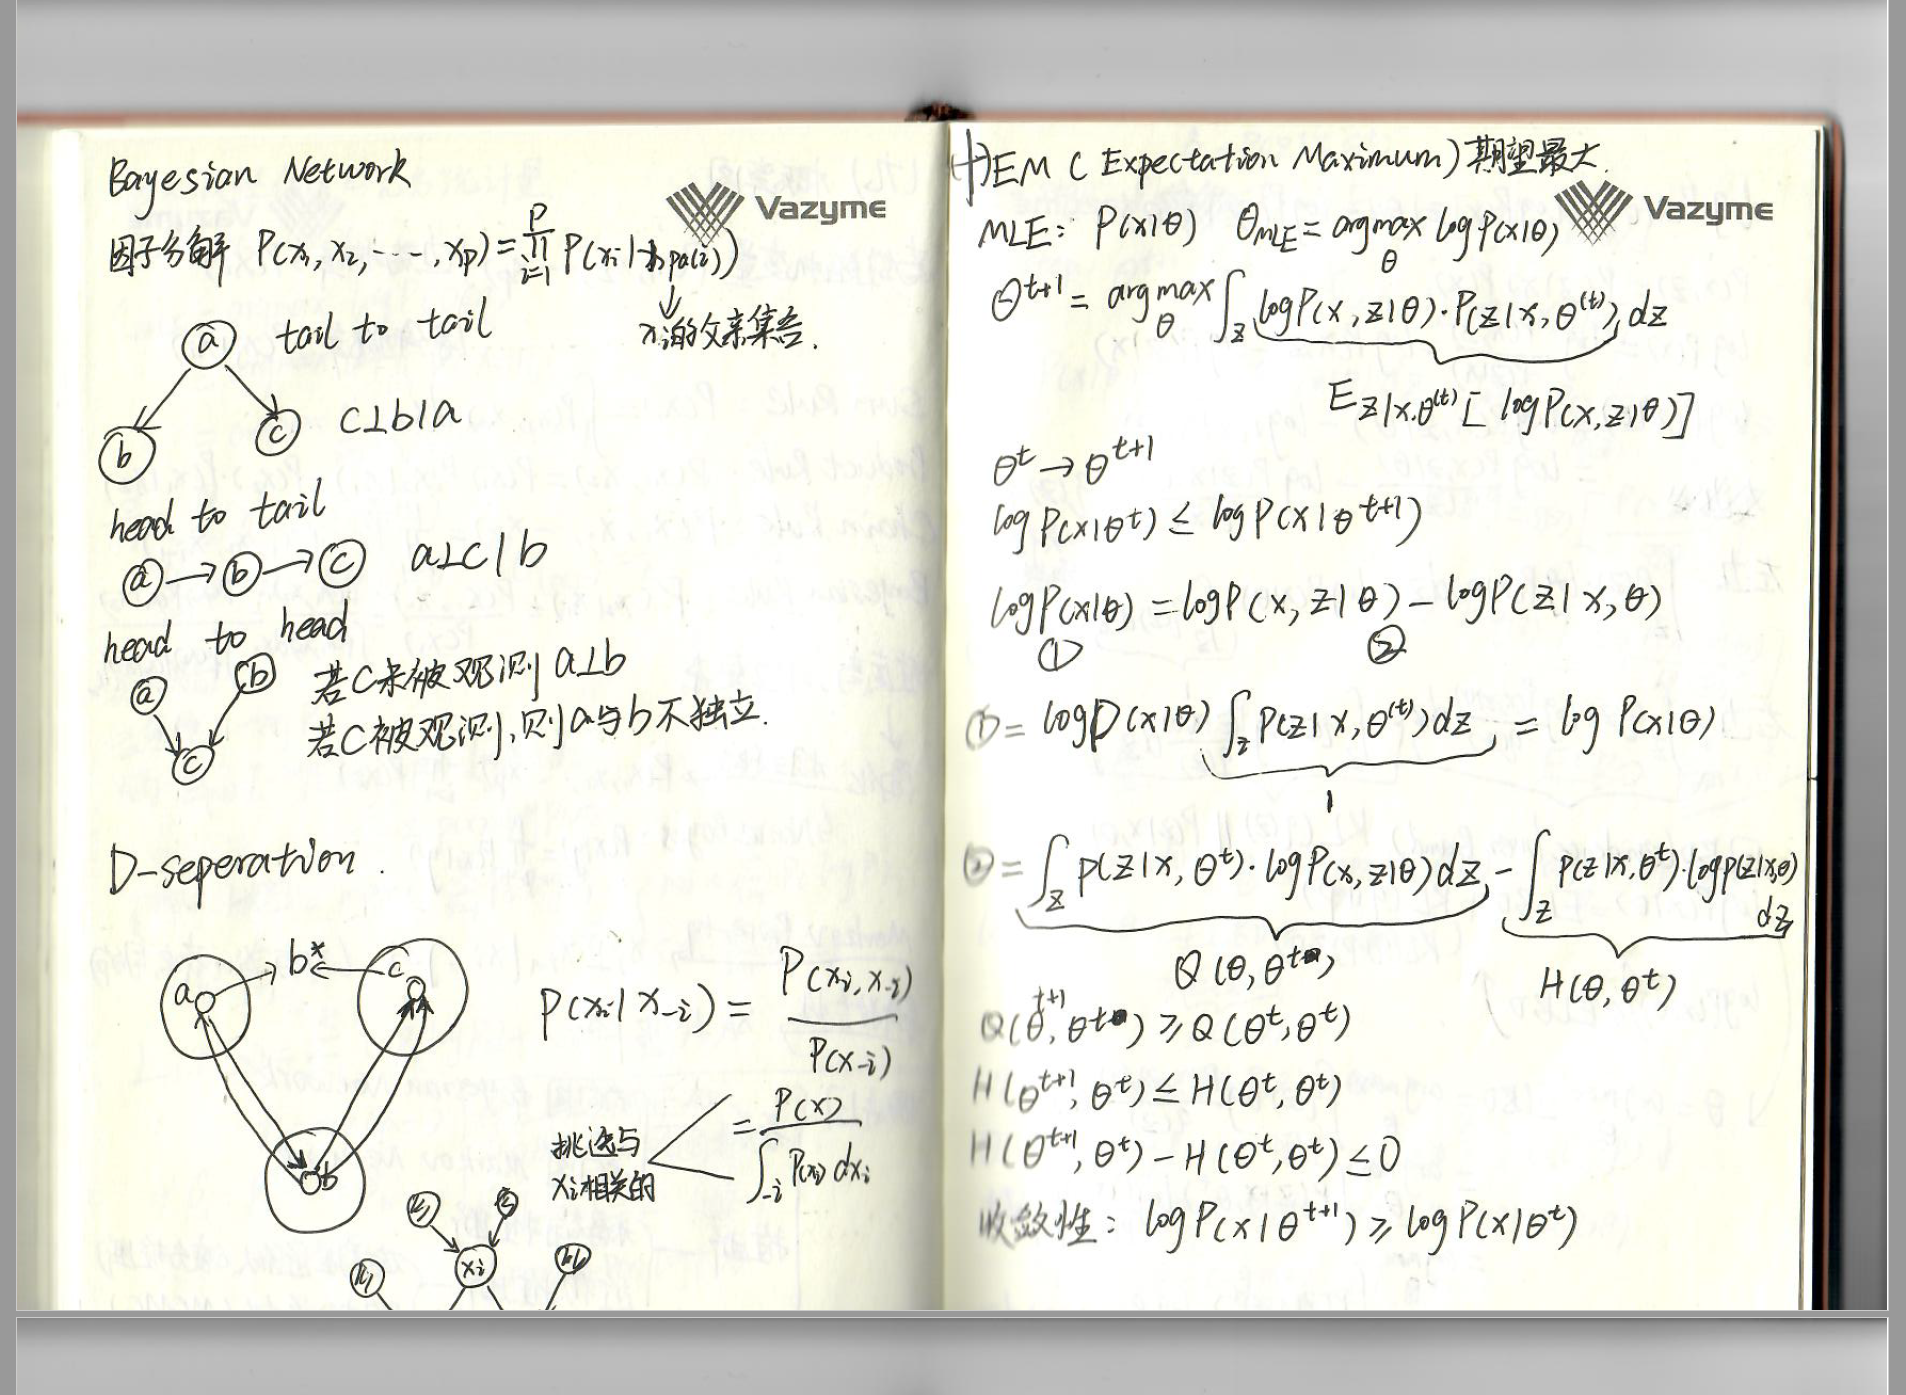 Bayesian Network
Vazyme
因子分解 P(x₁, x₂, ⋯, xp) = ∏ᵢ₌₁ᵖ P(xᵢ|x_pa(i))
↓
xᵢ的父亲集合.
a tail to tail
b c c⊥b|a
head to tail
a → b → c a⊥c|b
head to head
a b 若C未被观测 a⊥b
若C被观测,则a与b不独立.
c
D-seperation.
a b* c
b
P(xᵢ|x₋ᵢ) = P(xᵢ, x₋ᵢ) / P(x₋ᵢ)
= P(x) / ∫₋ᵢ P(xᵢ) dxᵢ
挑选与
xᵢ相关的
xᵢ
(十)EM ( Expectation Maximum) 期望最大.
Vazyme
MLE: P(x|θ) θ_MLE = argmax_θ log P(x|θ)
θᵗ⁺¹ = argmax_θ ∫_z log P(x, z|θ)·P(z|x, θ⁽ᵗ⁾) dz
E_z|x,θ⁽ᵗ⁾ [ log P(x, z|θ)]
θᵗ → θᵗ⁺¹
log P(x|θᵗ) ≤ log P(x|θᵗ⁺¹)
log P(x|θ) = log P(x, z|θ) − log P(z|x, θ)
① ②
① = log P(x|θ) ∫_z P(z|x, θ⁽ᵗ⁾) dz = log P(x|θ)
1
② = ∫_z P(z|x, θᵗ)·log P(x, z|θ) dz − ∫_z P(z|x, θᵗ)·log P(z|x,θ) dz
Q(θ, θᵗ) H(θ, θᵗ)
Q(θᵗ⁺¹, θᵗ) ≥ Q(θᵗ, θᵗ)
H(θᵗ⁺¹, θᵗ) ≤ H(θᵗ, θᵗ)
H(θᵗ⁺¹, θᵗ) − H(θᵗ, θᵗ) ≤ 0
收敛性: log P(x|θᵗ⁺¹) ≥ log P(x|θᵗ)